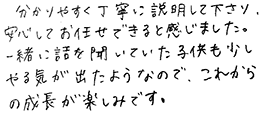 分かりやすく丁寧に説明して下さり、
安心してお任せできると感じました。
一緒に話を聞いていた子供も少し
やる気が出たようなので、これから
の成長が楽しみです。